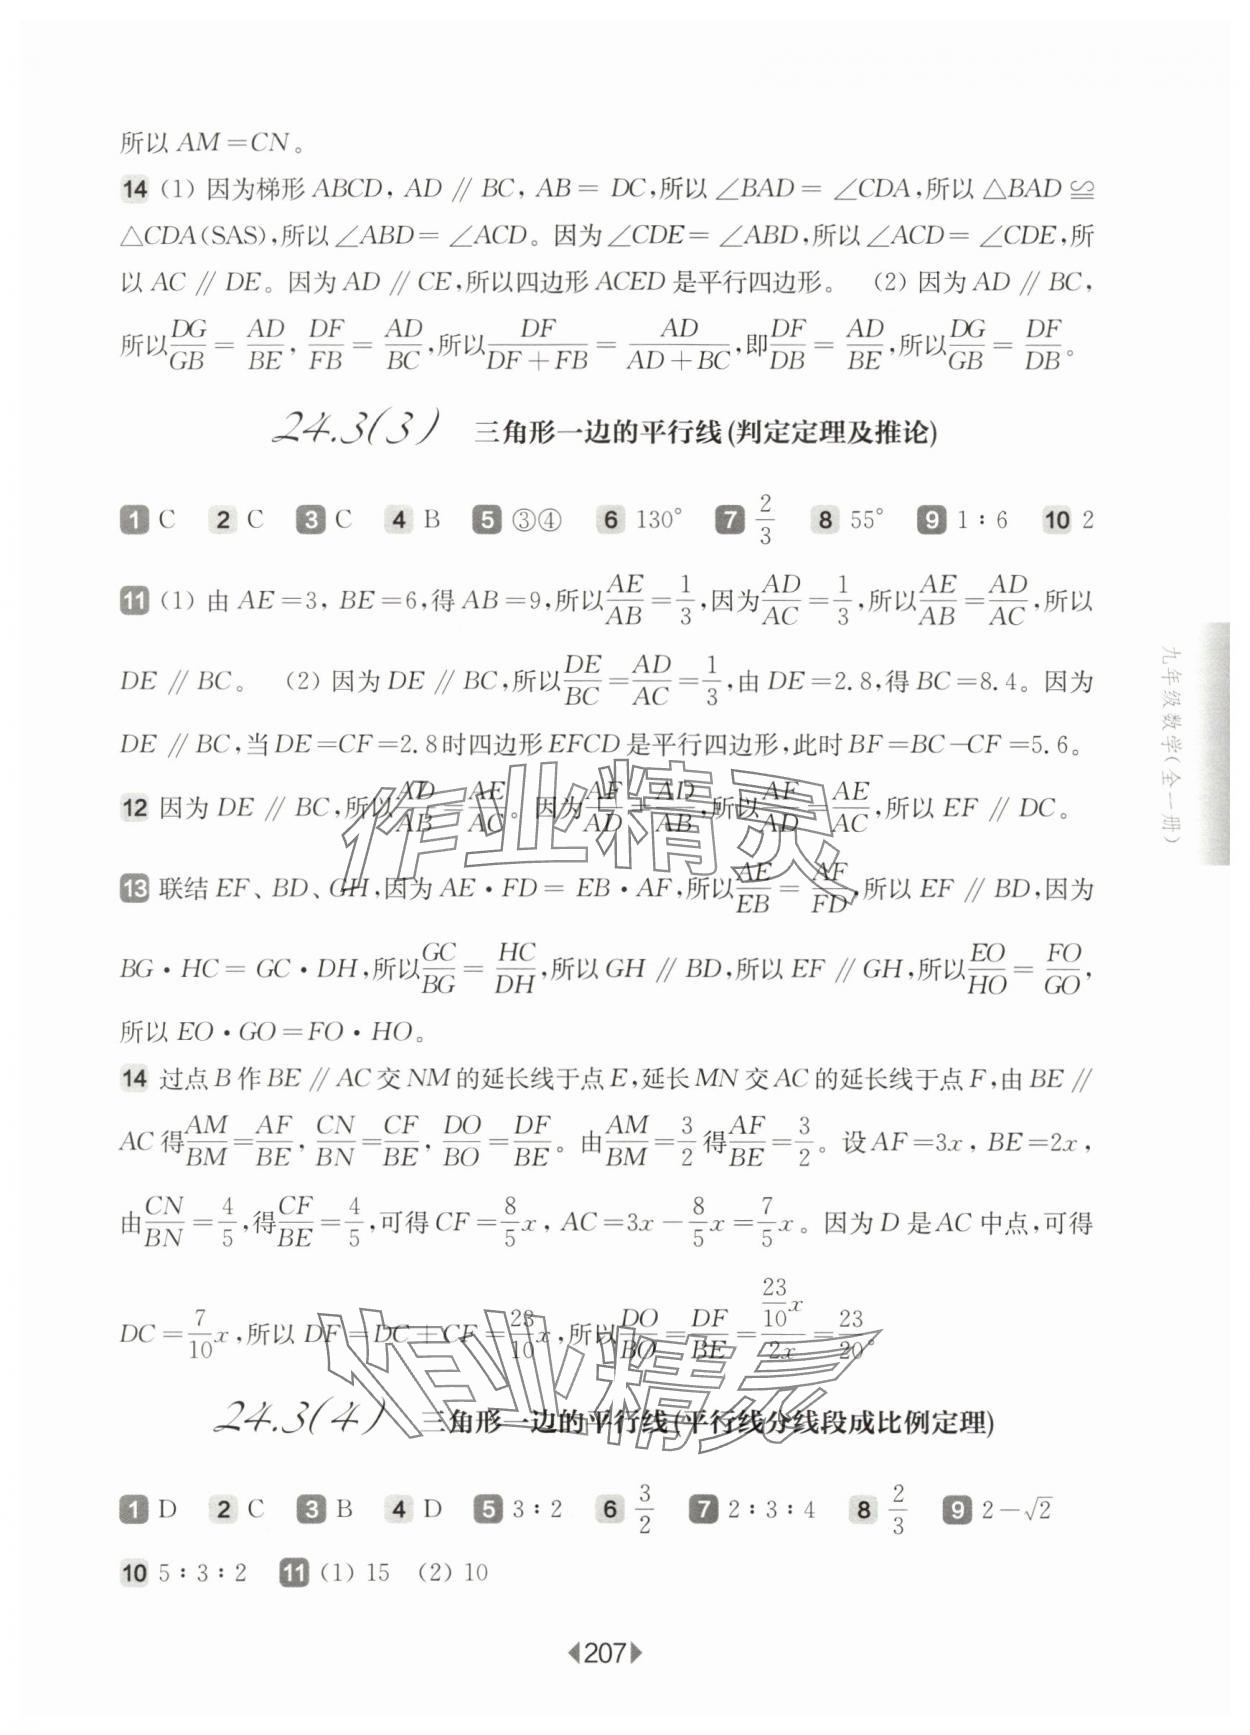 所以 AM=CN。
14 (1) 因为梯形 ABCD, AD // BC, AB= DC,所以 ∠BAD= ∠CDA,所以 △BAD ≌
△CDA(SAS),所以∠ABD= ∠ACD。因为∠CDE= ∠ABD,所以∠ACD= ∠CDE,所
以 AC // DE。因为 AD // CE,所以四边形 ACED 是平行四边形。 (2) 因为 AD // BC,
所以DG/GB = AD/BE, DF/FB = AD/BC,所以DF/(DF+FB) = AD/(AD+BC),即DF/DB = AD/BE,所以DG/GB = DF/DB。
24.3(3) 三角形一边的平行线(判定定理及推论)
1 C 2 C 3 C 4 B 5 ③④ 6 130° 7 2/3 8 55° 9 1∶6 10 2
11 (1) 由 AE=3, BE=6,得 AB=9,所以AE/AB=1/3,因为AD/AC=1/3,所以AE/AB=AD/AC,所以
DE // BC。 (2) 因为 DE // BC,所以DE/BC=AD/AC=1/3,由 DE=2.8,得 BC=8.4。因为
DE // BC,当 DE=CF=2.8时四边形EFCD是平行四边形,此时 BF=BC-CF=5.6。
12 因为 DE // BC,所以AD/AB=AE/AC。因为AF/AD=AD/AB,所以AF/AD=AE/AC,所以 EF // DC。
13 联结 EF、BD、GH,因为 AE·FD= EB·AF,所以AE/EB = AF/FD,所以 EF // BD,因为
BG·HC= GC·DH,所以GC/BG = HC/DH,所以 GH // BD,所以 EF // GH,所以EO/HO = FO/GO,
所以 EO·GO=FO·HO。
14 过点 B 作 BE // AC 交 NM 的延长线于点 E,延长 MN 交 AC 的延长线于点 F,由 BE //
AC 得AM/BM=AF/BE, CN/BN=CF/BE, DO/BO=DF/BE。由AM/BM=3/2得AF/BE=3/2。设 AF=3x, BE=2x,
由CN/BN=4/5,得CF/BE=4/5,可得 CF=8/5x, AC=3x-8/5x=7/5x。因为 D 是 AC 中点,可得
DC=7/10x,所以 DF=DC+CF=23/10x,所以DO/BO=DF/BE=(23/10x)/2x=23/20。
24.3(4) 三角形一边的平行线(平行线分线段成比例定理)
1 D 2 C 3 B 4 D 5 3∶2 6 3/2 7 2∶3∶4 8 2/3 9 2-√2
10 5∶3∶2 11 (1) 15 (2) 10
207
九年级数学(全一册)
作业精灵
作业精灵